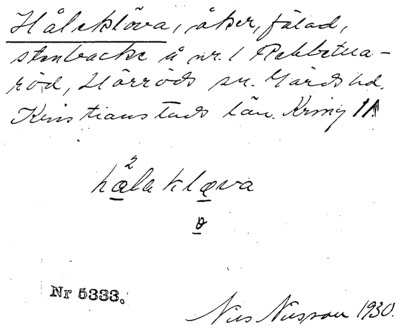 Hålekløva, åker, fälad,
stenbacke å nr. 1 Rebbetua-
röd, Hörröds sn. Gärds hd.
Kristianstads län. Kring 11
2
hålaklɶva
ɵ
Nr 5333.
Nils Nilsson 1930.